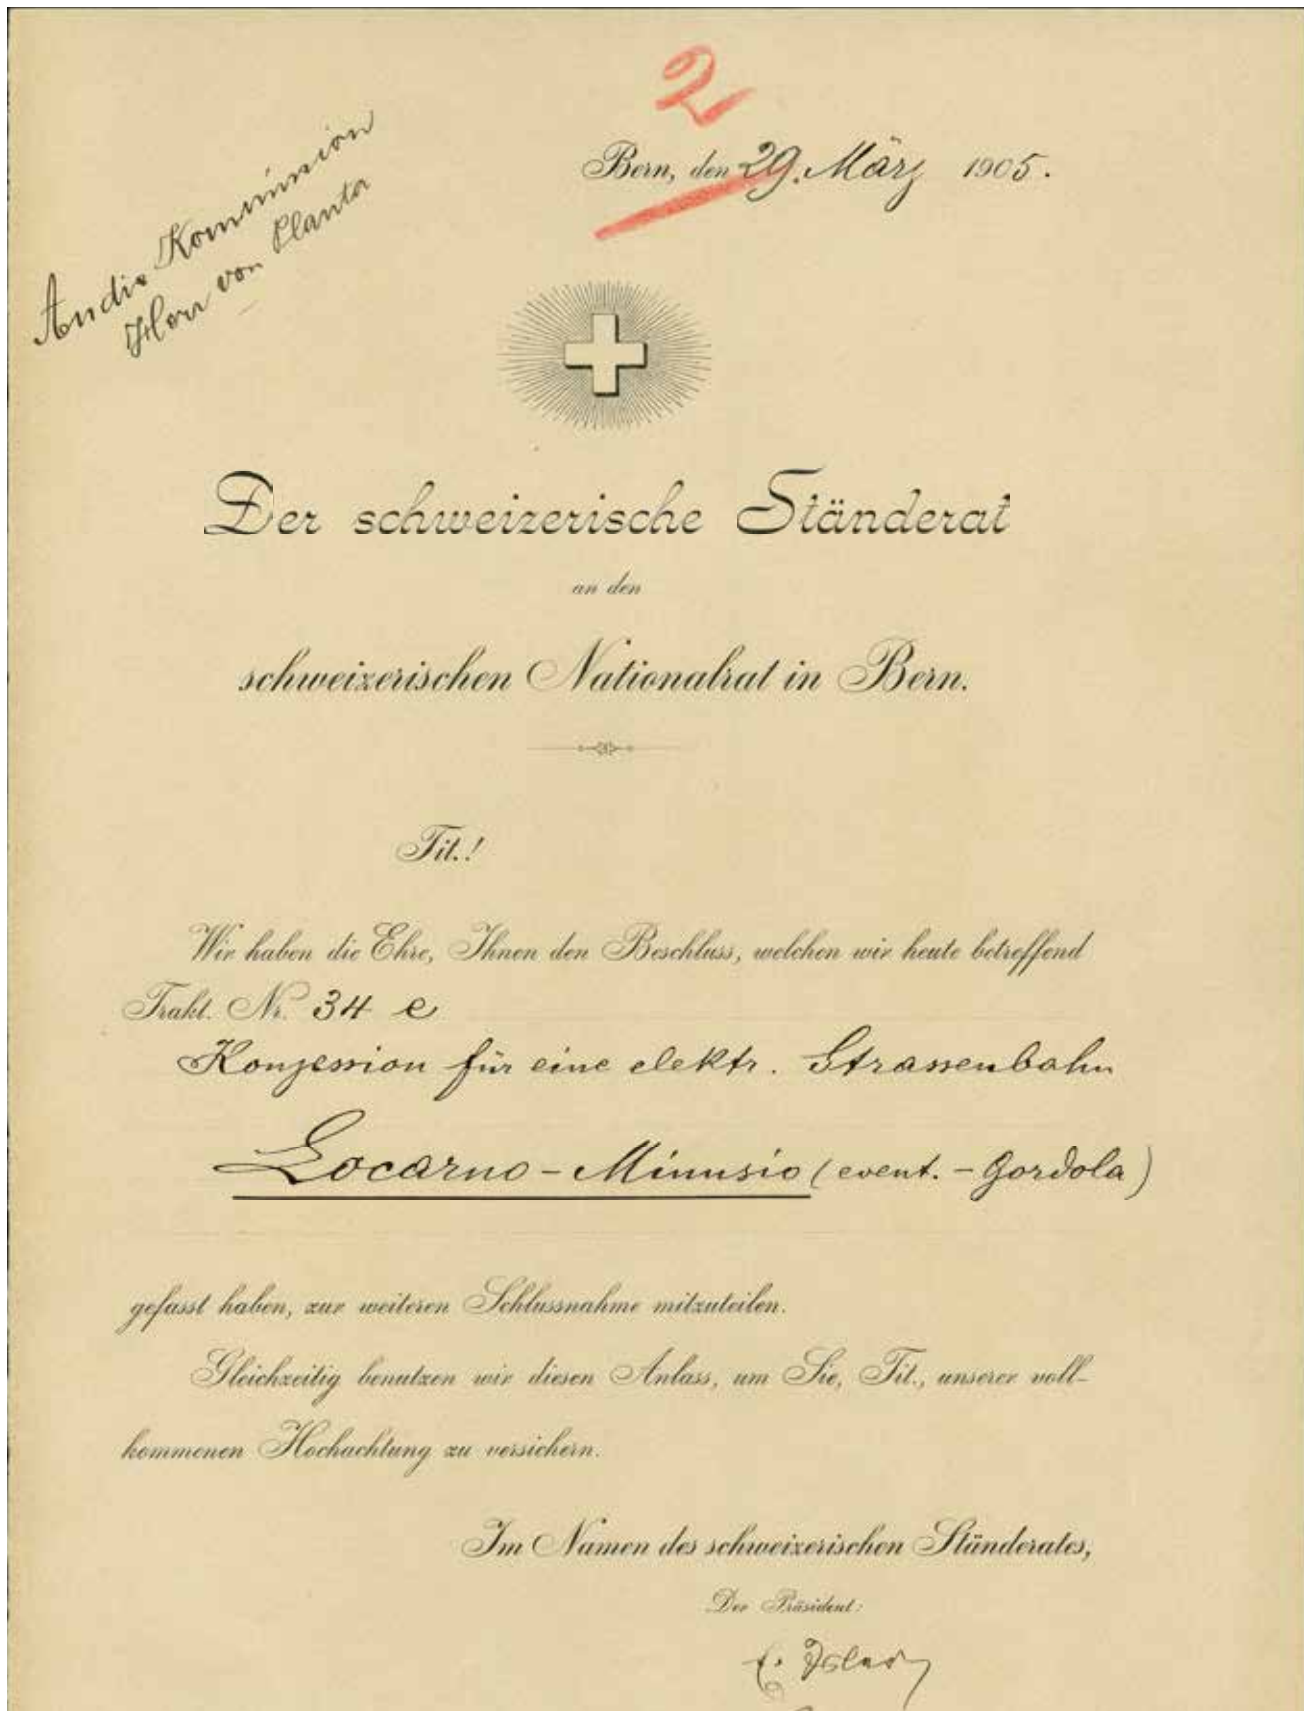 2
Bern, den 29. März 1905.
An die Kommission
Herr von Planta
Der schweizerische Ständerat
an den
schweizerischen Nationalrat in Bern.
Tit.!
Wir haben die Ehre, Ihnen den Beschluss, welchen wir heute betreffend
Trakt. Nr. 34 e
Konzession für eine elektr. Strassenbahn
Locarno - Minusio (event. - Gordola)
gefasst haben, zur weiteren Schlussnahme mitzuteilen.
Gleichzeitig benutzen wir diesen Anlass, um Sie, Tit., unserer voll-
kommenen Hochachtung zu versichern.
Im Namen des schweizerischen Ständerates,
Der Präsident: